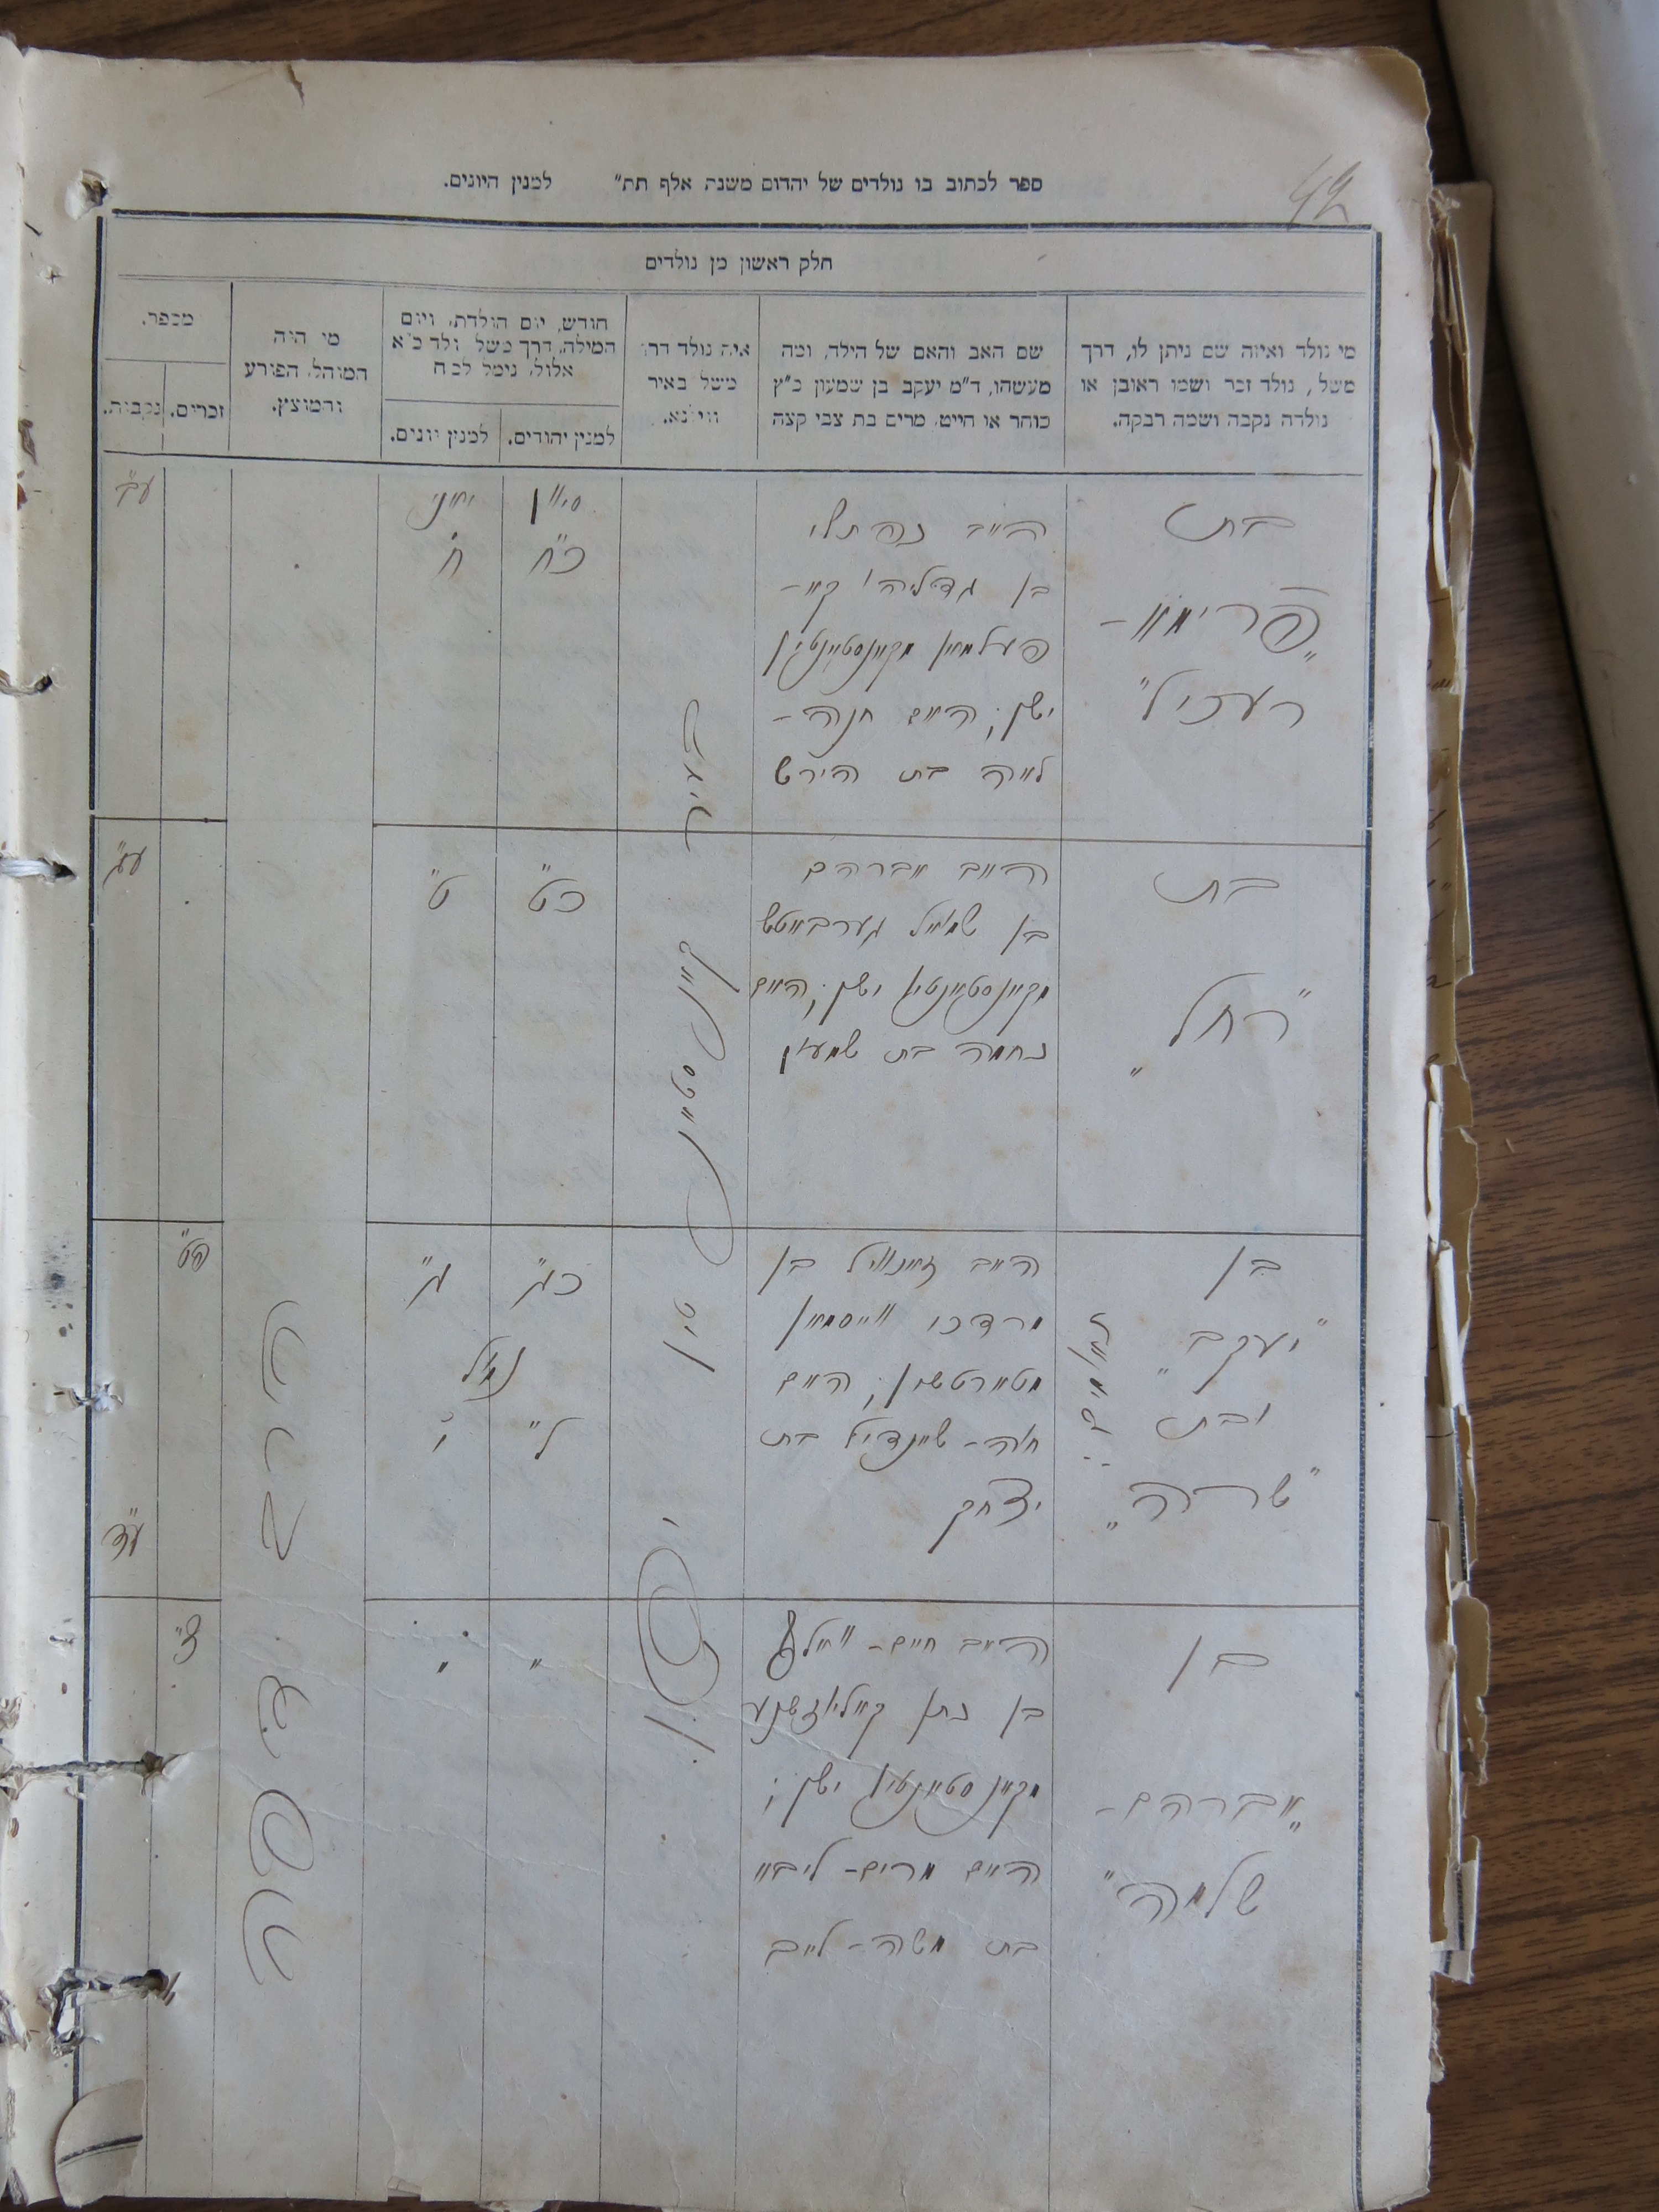 42
ספר לכתוב בו נולדים של יהדום משנת אלף תת״ למנין היונים.
חלק ראשון מן נולדים
מי נולד ואיזה שם ניתן לו, דרך
משל, נולד זכר ושמו ראובן או
נולדה נקבה ושמה רבקה.
שם האב והאם של הילד, ומה
מעשהו, ד״מ יעקב בן שמעון כ״ץ
סוחר או חייט, מרים בת צבי קצה
איה נולד דרך
משל באיר
ווילנא.
חודש, יום הולדת, ויום
המילה, דרך משל נולד כ״א
אלול, נימל לכ״ח
למנין יהודים.
למנין יונים.
מי היה
המוהל, הפורע
והמוצץ.
מספר.
זכרים.
נקבות.
בת
„פרימא–
רעכיל״
האב נפתלי
בן גדליה
מקאנסטאנטין
ישן; האם חנה–
לאה בת הירש
סיון
כ״ח
יוני
ח׳
ע״ב
בת
״רחל„
האב אברהם
בן שמואל
מקאנסטאנטין ישן; האם
נחמה בת שמעון
כ״ט
ט״
ע״ג
בן
״יעקב„
ובת
״שרה„
תאומים:
האב זיינוויל בן
מרדכי ווייסמאן
האם
חיה–שיינדיל בת
יצחק
כ״ג
ג״
נימול
ל״
י׳
פ״ט
ע״ד
בן
„אברהם–
שלמה״
האב חיים–וואלף
בן נתן
מקאנסטאנטין ישן;
האם מרים–ליבא
בת משה–לייב
״
״
צ״
העיר קאנסטאנטין ישן.